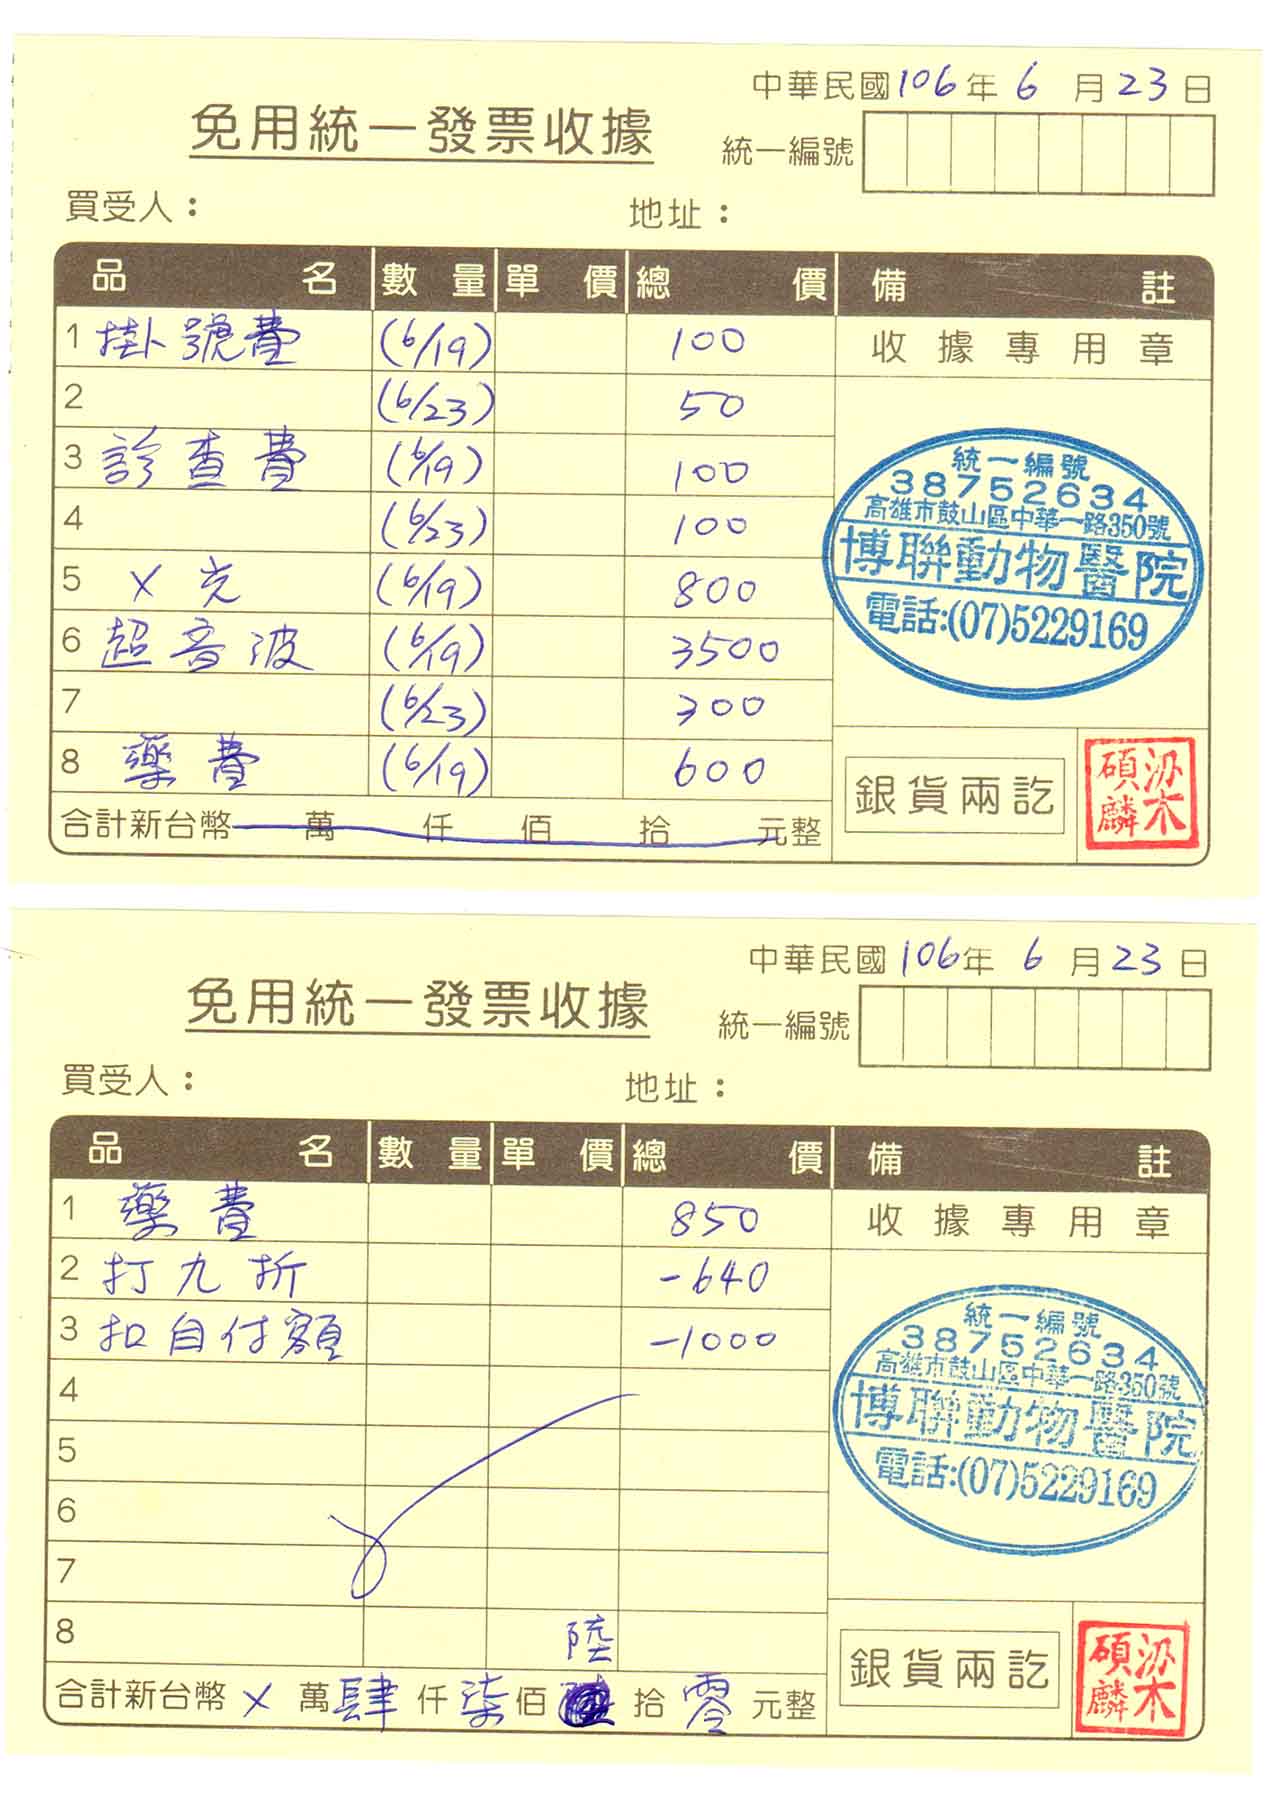 中華民國106年6月23日
免用統一發票收據
統一編號
買受人：
地址：
品名 數量 單價 總價 備註
1 掛號費 (6/19) 100
收據專用章
2 (6/23) 50
3 診查費 (6/19) 100
4 (6/23) 100
5 X光 (6/19) 800
6 超音波 (6/19) 3500
7 (6/23) 300
8 藥費 (6/19) 600
統一編號
38752634
高雄市鼓山區中華一路350號
博聯動物醫院
電話:(07)5229169
合計新台幣 萬 仟 佰 拾 元整
銀貨兩訖
梁碩麟
中華民國106年6月23日
免用統一發票收據
統一編號
買受人：
地址：
品名 數量 單價 總價 備註
1 藥費 850
收據專用章
2 打九折 -640
3 扣自付額 -1000
4
5
6
7
8
統一編號
38752634
高雄市鼓山區中華一路350號
博聯動物醫院
電話:(07)5229169
陸
合計新台幣 X 萬 肆 仟 柒 佰 拾 零 元整
銀貨兩訖
梁碩麟